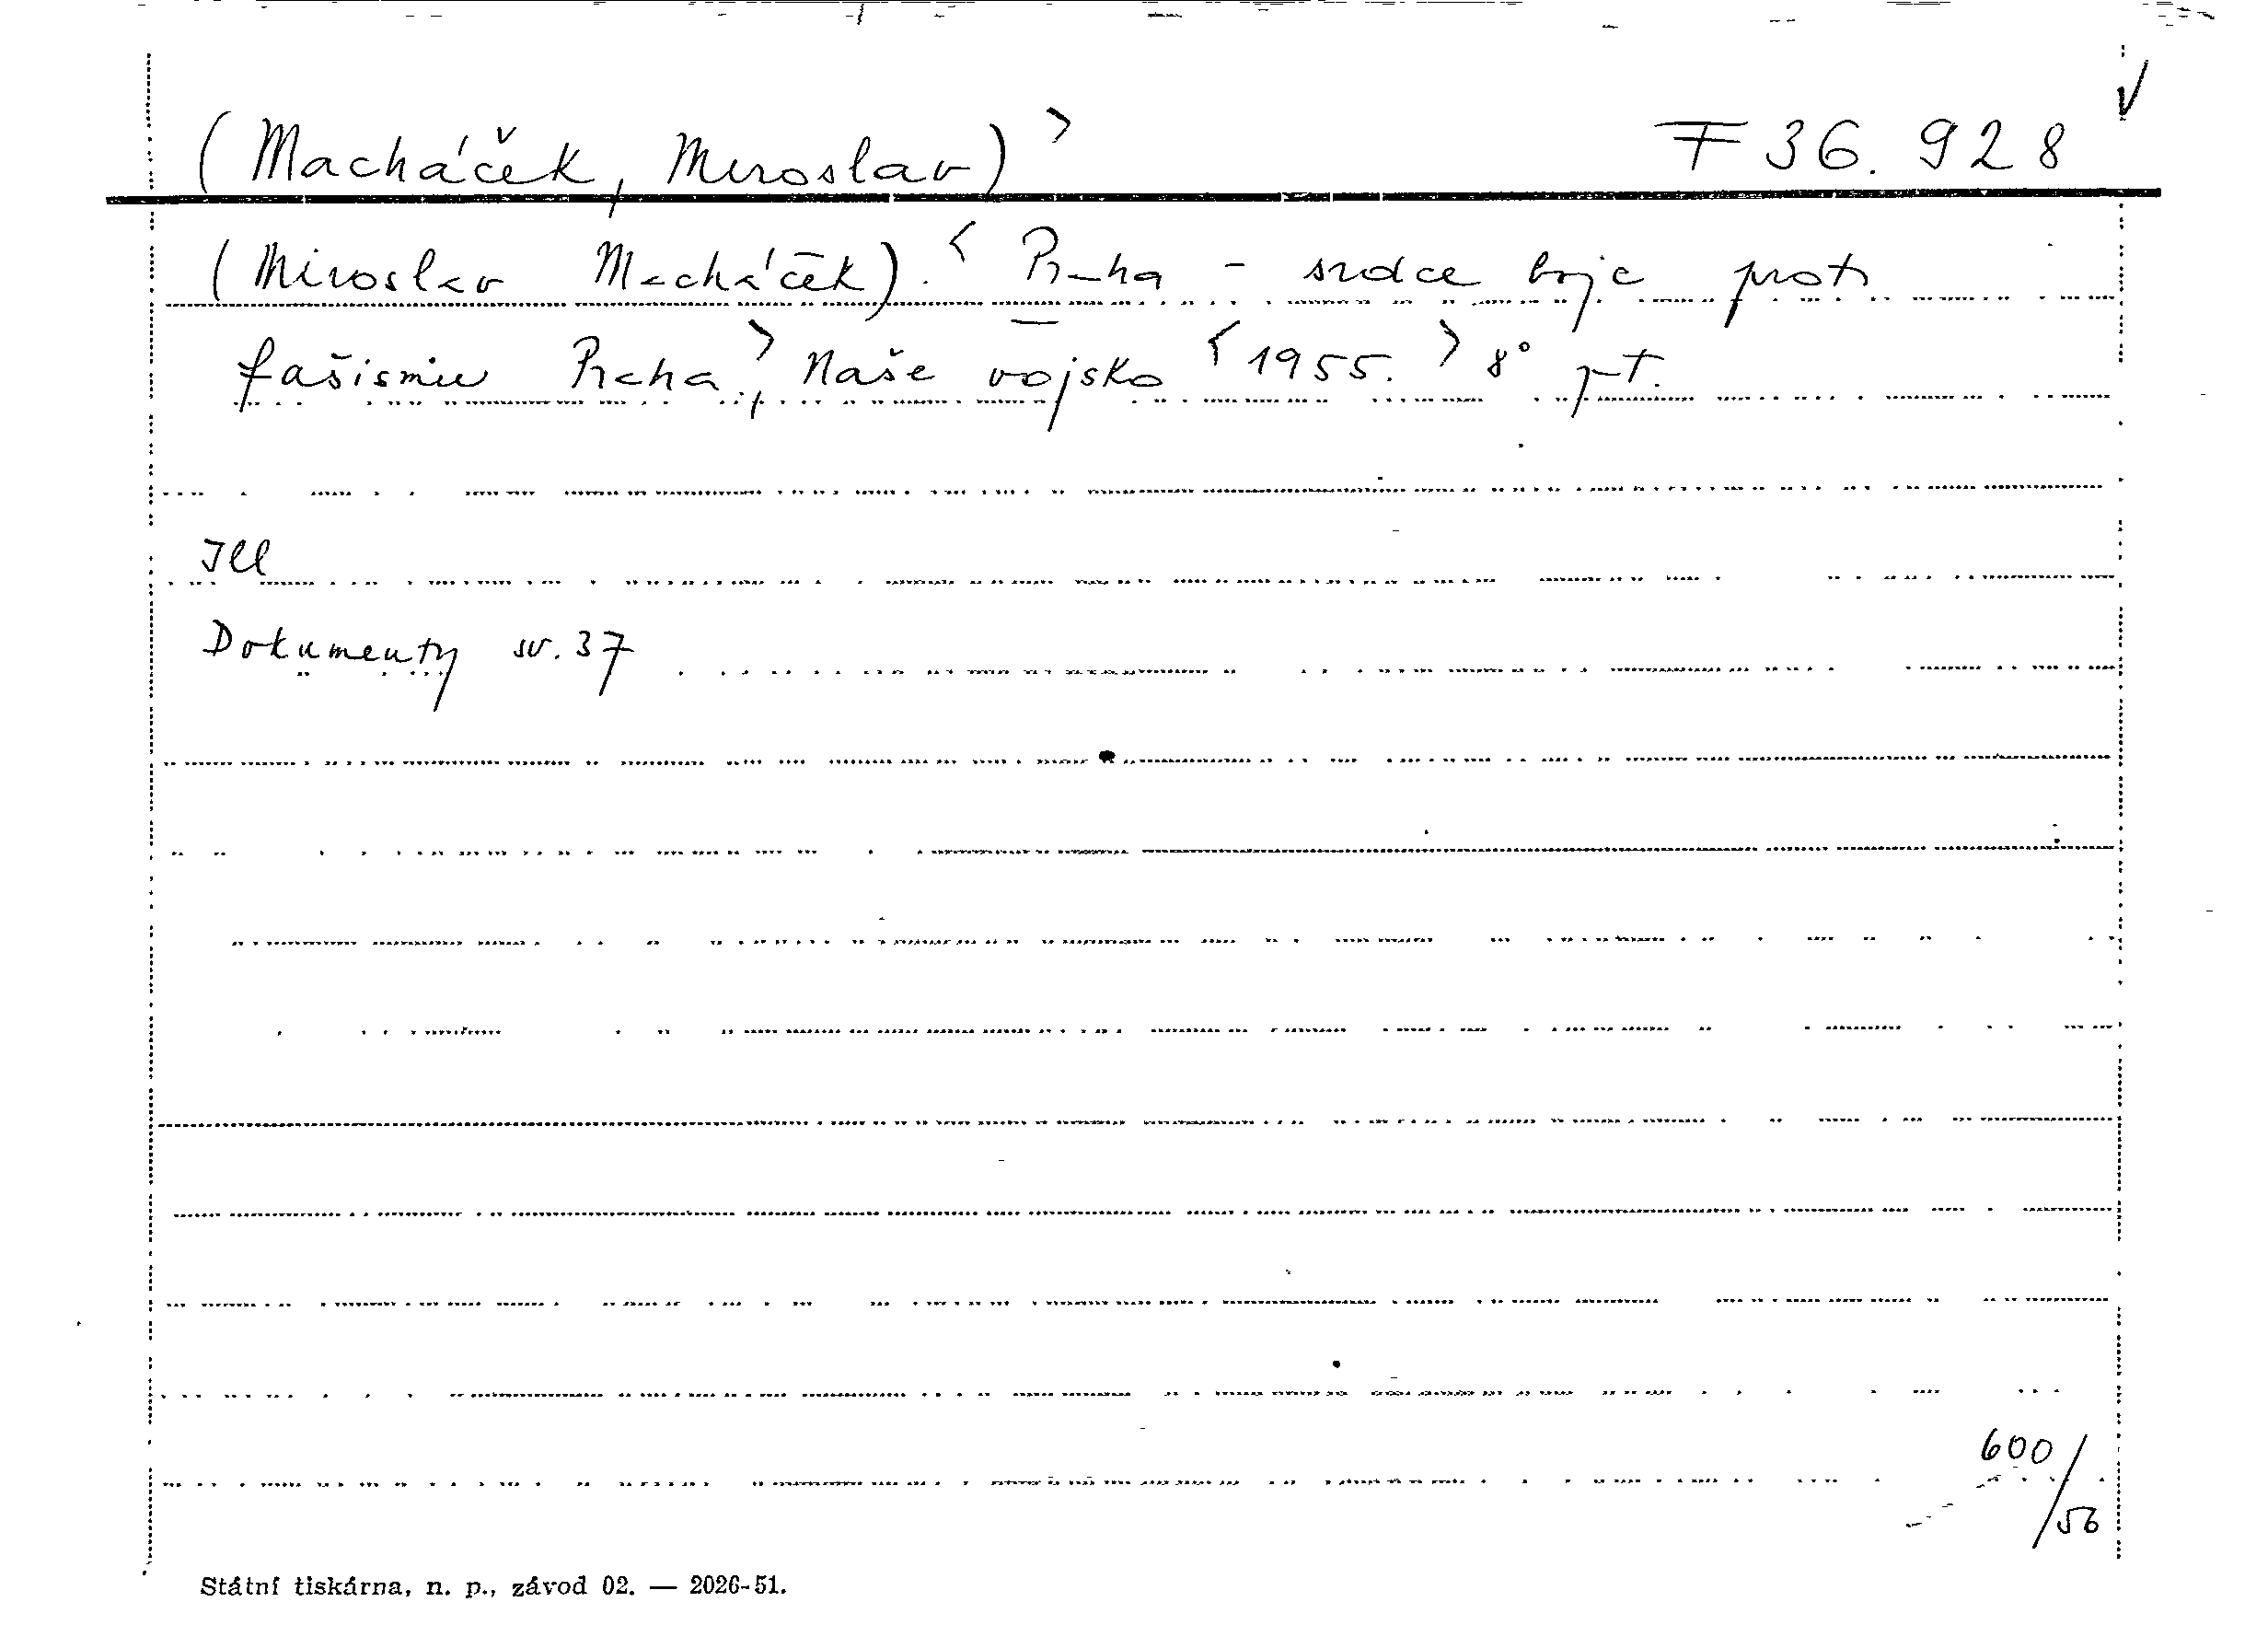 (Macháček, Miroslav)> F 36.928
(Miroslav Macháček).< Praha - srdce boje proti
fašismu Praha,> Naše vojsko <1955.> 8°
Ill
Dokumenty sv. 37
600/56
Státní tiskárna, n. p., závod 02. — 2026-51.